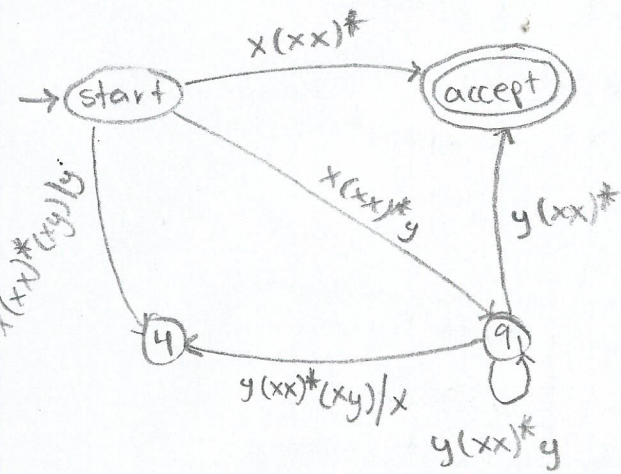 x(xx)*
start
accept
x(xx)*(xy)/y
x(xx)*y
y(xx)*
4
9
y(xx)*(xy)/x
y(xx)*y